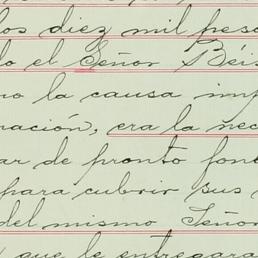 los diez mil peso
do el Señor Béis
no la causa imp
ración, era la nec
ar de pronto fond
para cubrir sus
del mismo Señor
que le entregara